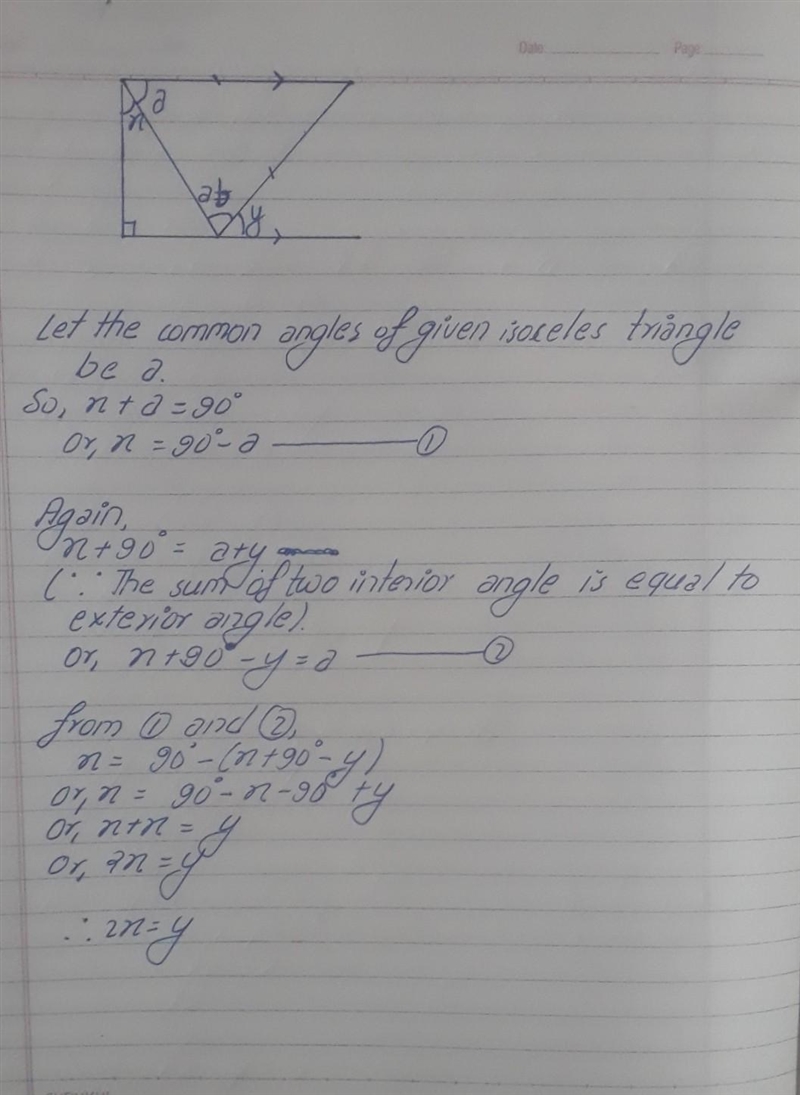 Date Page
a
x
a
y
Let the common angles of given isoceles triangle
be a.
So, x + a = 90°
Or, x = 90° - a ——— ①
Again,
x + 90° = a + y
(∵ The sum of two interior angle is equal to
exterior angle).
Or, x + 90° - y = a ——— ②
from ① and ②,
x = 90° - (x + 90° - y)
Or, x = 90° - x - 90° + y
Or, x + x = y
Or, 2x = y
∴ 2x = y